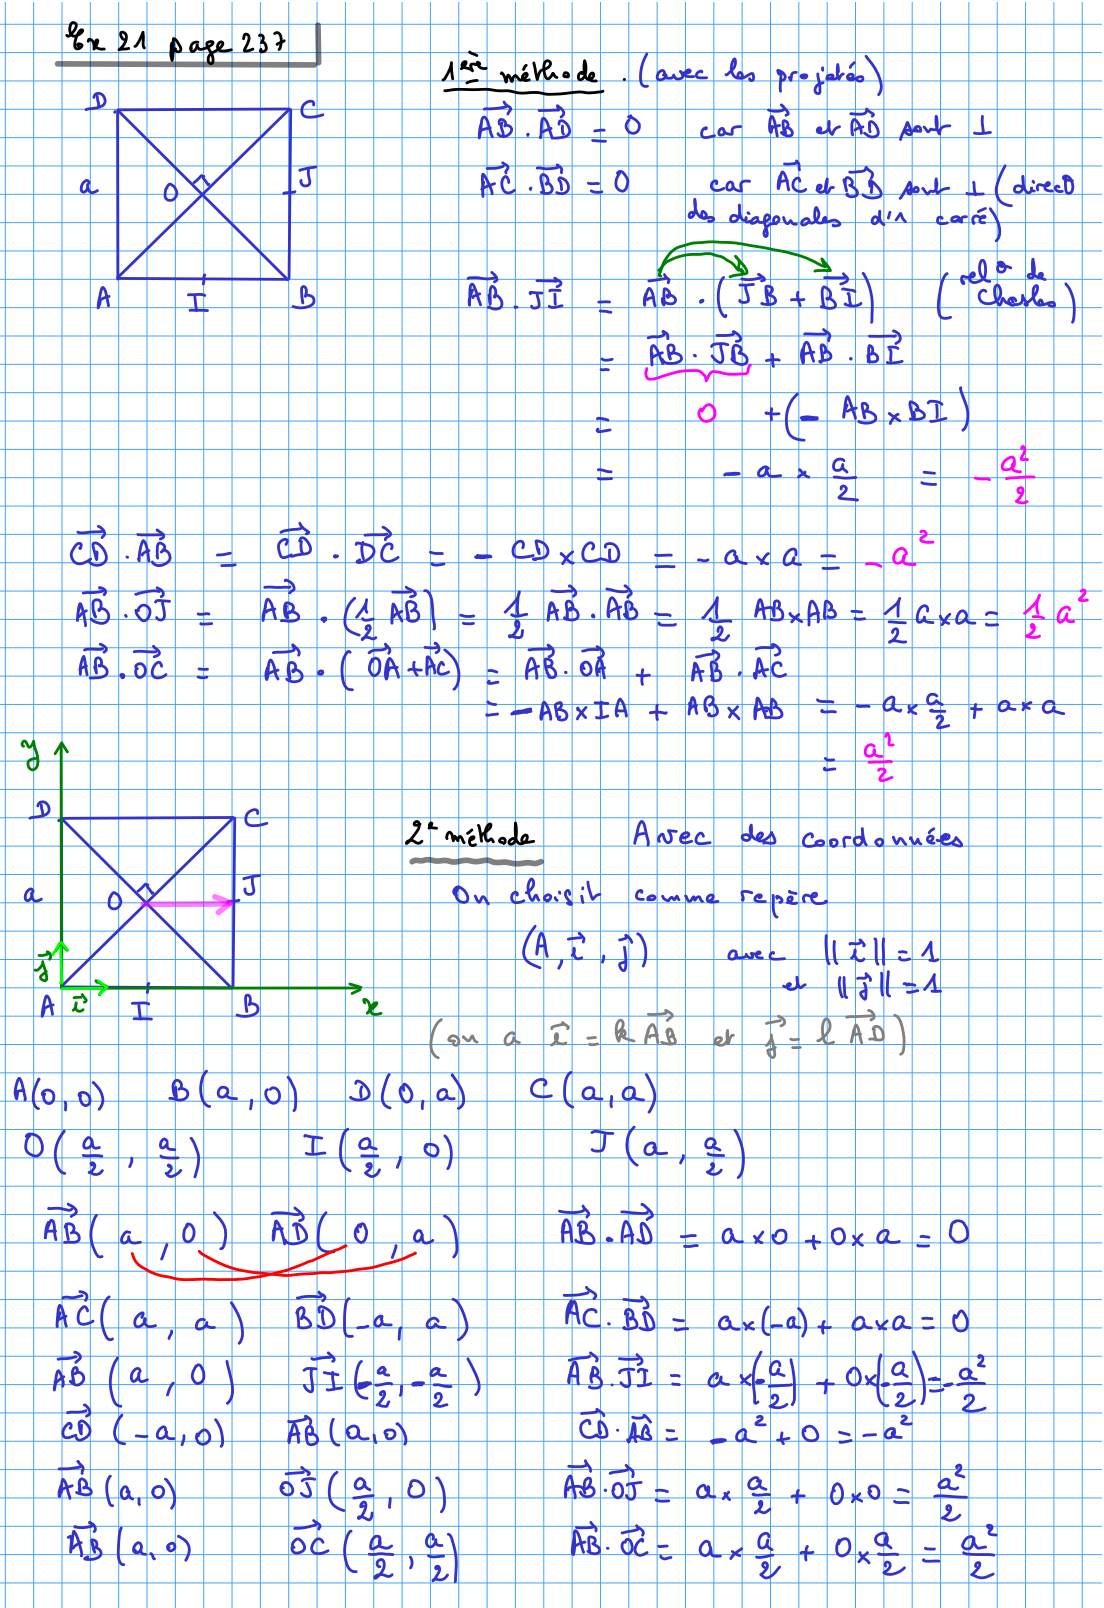 Ex 21 page 237
1ère méthode . (avec les projetés)
D C
a O J
A I B
AB⃗ . AD⃗ = 0 car AB⃗ et AD⃗ sont ⊥
AC⃗ . BD⃗ = 0 car AC⃗ et BD⃗ sont ⊥ (direct°
des diagonales d'1 carré)
AB⃗ . JI⃗ = AB⃗ . (JB⃗ + BI⃗) (rel° de Chasles)
= AB⃗ . JB⃗ + AB⃗ . BI⃗
= 0 + (- AB × BI)
= - a × a/2 = - a²/2
CD⃗ . AB⃗ = CD⃗ . DC⃗ = - CD × CD = - a × a = - a²
AB⃗ . OJ⃗ = AB⃗ . (1/2 AB⃗) = 1/2 AB⃗ . AB⃗ = 1/2 AB × AB = 1/2 a × a = 1/2 a²
AB⃗ . OC⃗ = AB⃗ . (OA⃗ + AC⃗) = AB⃗ . OA⃗ + AB⃗ . AC⃗
= - AB × IA + AB × AB = - a × a/2 + a × a
= a²/2
y
D C
a O J
j⃗
A i⃗ I B x
2e méthode Avec des coordonnées
On choisit comme repère
(A, i⃗, j⃗) avec ||i⃗|| = 1
et ||j⃗|| = 1
(on a i⃗ = k AB⃗ et j⃗ = l AD⃗)
A(0,0) B(a,0) D(0,a) C(a,a)
O(a/2, a/2) I(a/2, 0) J(a, a/2)
AB⃗(a,0) AD⃗(0,a) AB⃗ . AD⃗ = a × 0 + 0 × a = 0
AC⃗(a,a) BD⃗(-a,a) AC⃗ . BD⃗ = a × (-a) + a × a = 0
AB⃗(a,0) JI⃗(-a/2, -a/2) AB⃗ . JI⃗ = a × (-a/2) + 0 × (-a/2) = -a²/2
CD⃗(-a,0) AB⃗(a,0) CD⃗ . AB⃗ = -a² + 0 = -a²
AB⃗(a,0) OJ⃗(a/2, 0) AB⃗ . OJ⃗ = a × a/2 + 0 × 0 = a²/2
AB⃗(a,0) OC⃗(a/2, a/2) AB⃗ . OC⃗ = a × a/2 + 0 × a/2 = a²/2